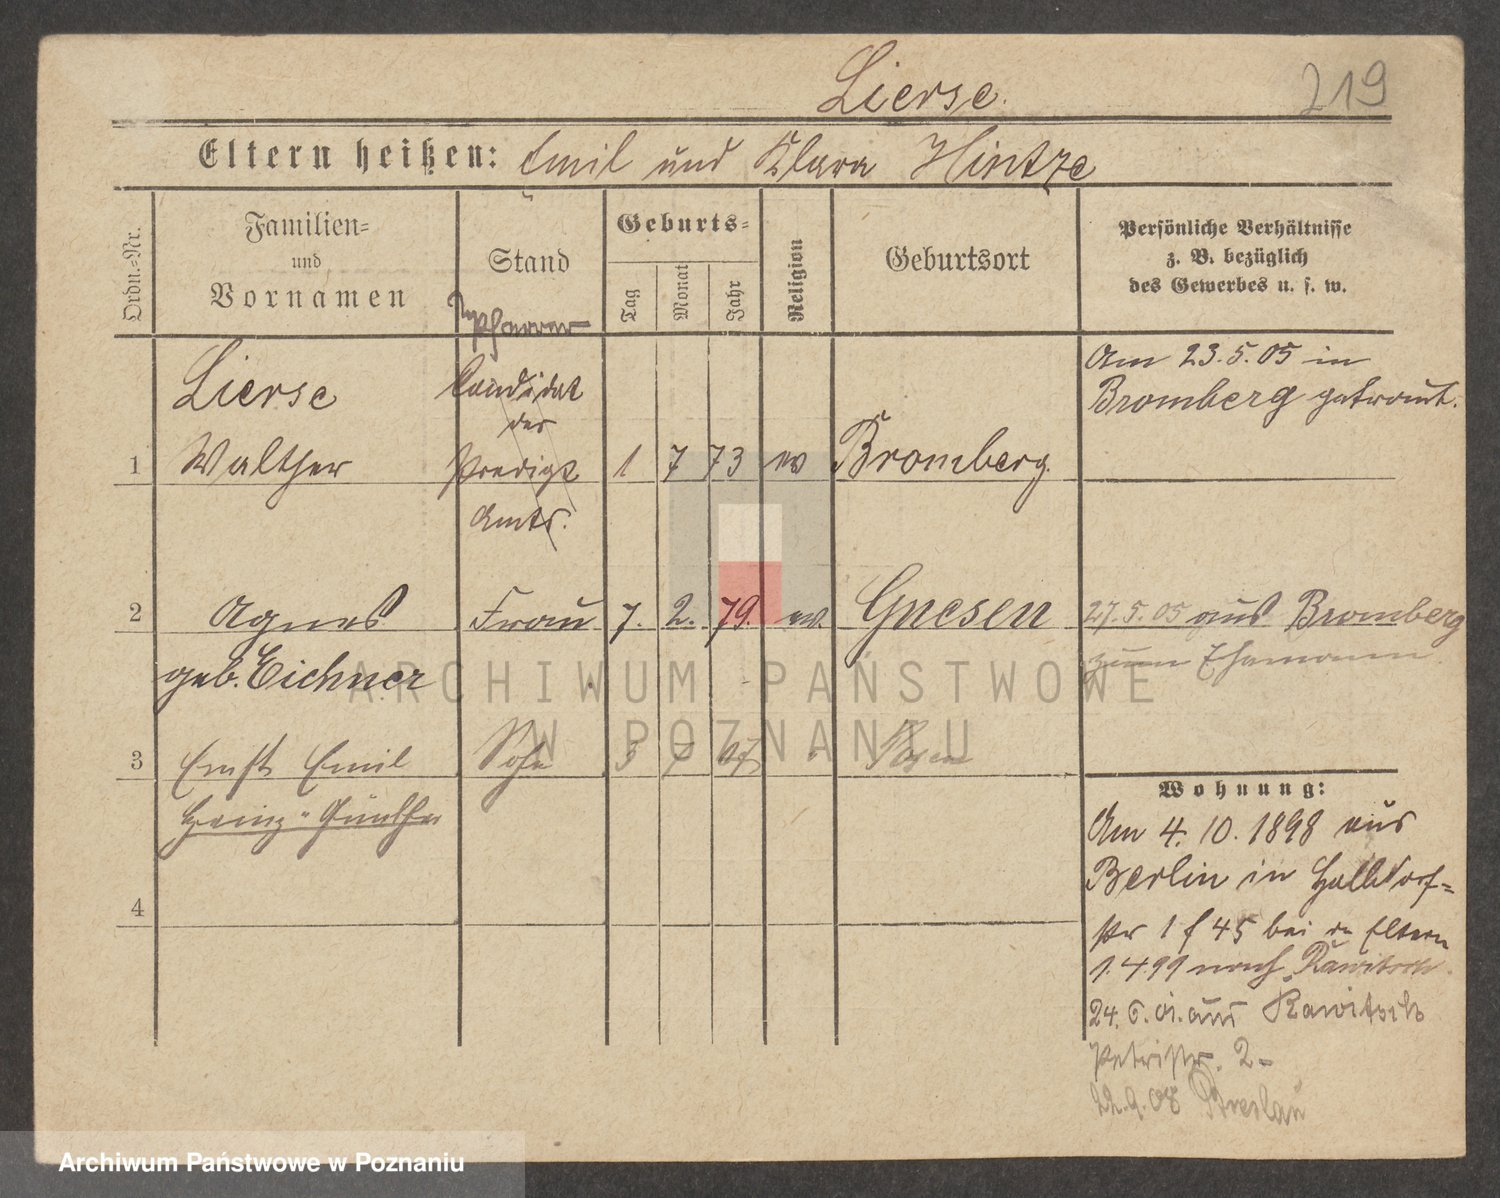 Lierse.
219
Eltern heißen: Emil und Klara Hintze
Ordn.-Nr.
Familien-
und
Vornamen
Stand
Geburts-
Tag
Monat
Jahr
Religion
Geburtsort
Persönliche Verhältnisse
z. B. bezüglich
des Gewerbes u. s. w.
Pfarrer
Lierse
Candidat
des
Am 23.5.05 in
Bromberg getraut.
1 Walther Predigt 1 7 73 ev Bromberg.
Amts.
2 Agnes Frau 7. 2. 79. ev. Gnesen 27.5.05 aus Bromberg
geb. Eichner
zum Ehemann.
3 Ernst Emil Sohn 3 7 07 Posen
Heinz-Günther
4
Wohnung:
Am 4. 10. 1898 aus
Berlin in Halbdorf-
str 1 f 45 bei den Eltern
1.4.99 nach Rawitsch.
24. 6. 01. aus Rawitsch
Petristr. 2-
22.9.08 Breslau
ARCHIWUM PAŃSTWOWE
W POZNANIU
Archiwum Państwowe w Poznaniu